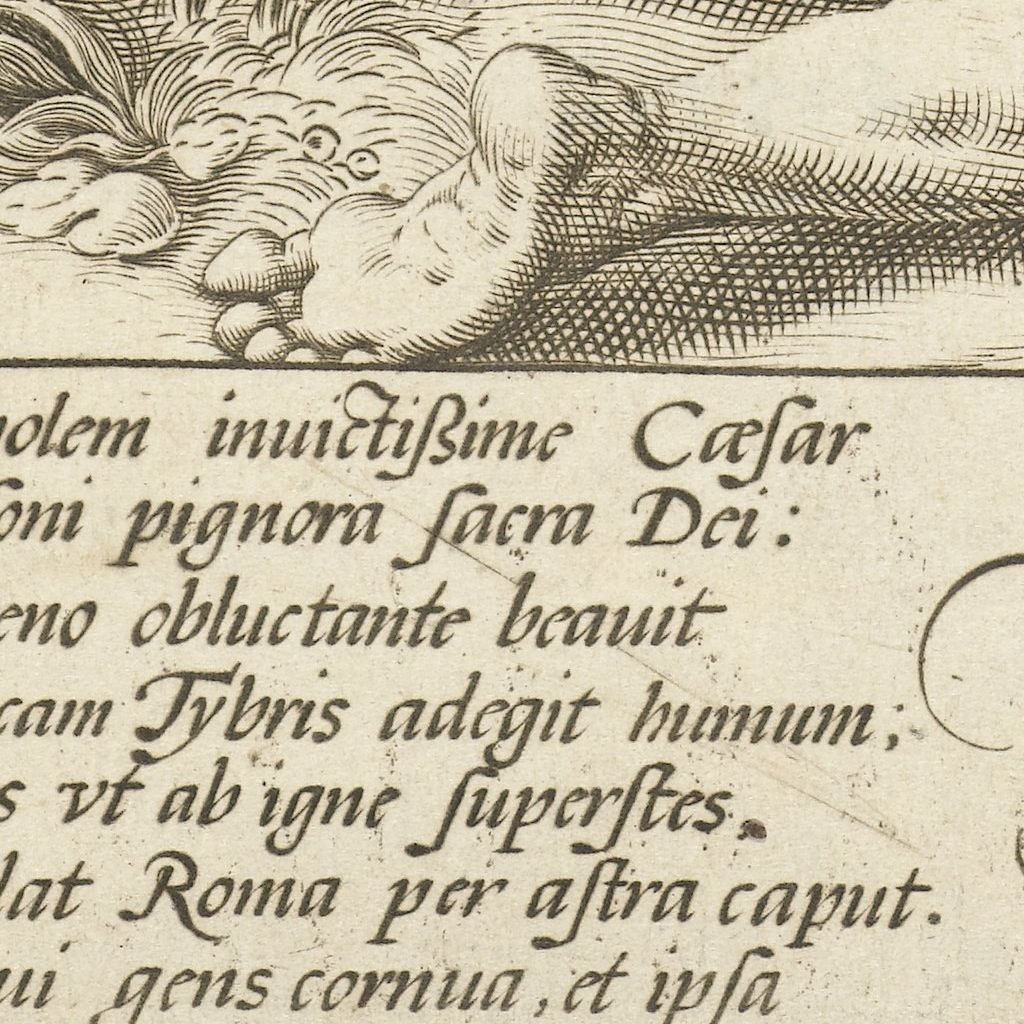 olem inuictißime Cæſar
oni pignora ſacra Dei:
eno obluctante beauit
cam Tybris adegit humum;
s vt ab igne ſuperſtes.
lat Roma per aſtra caput.
ui gens cornua, et ipſa